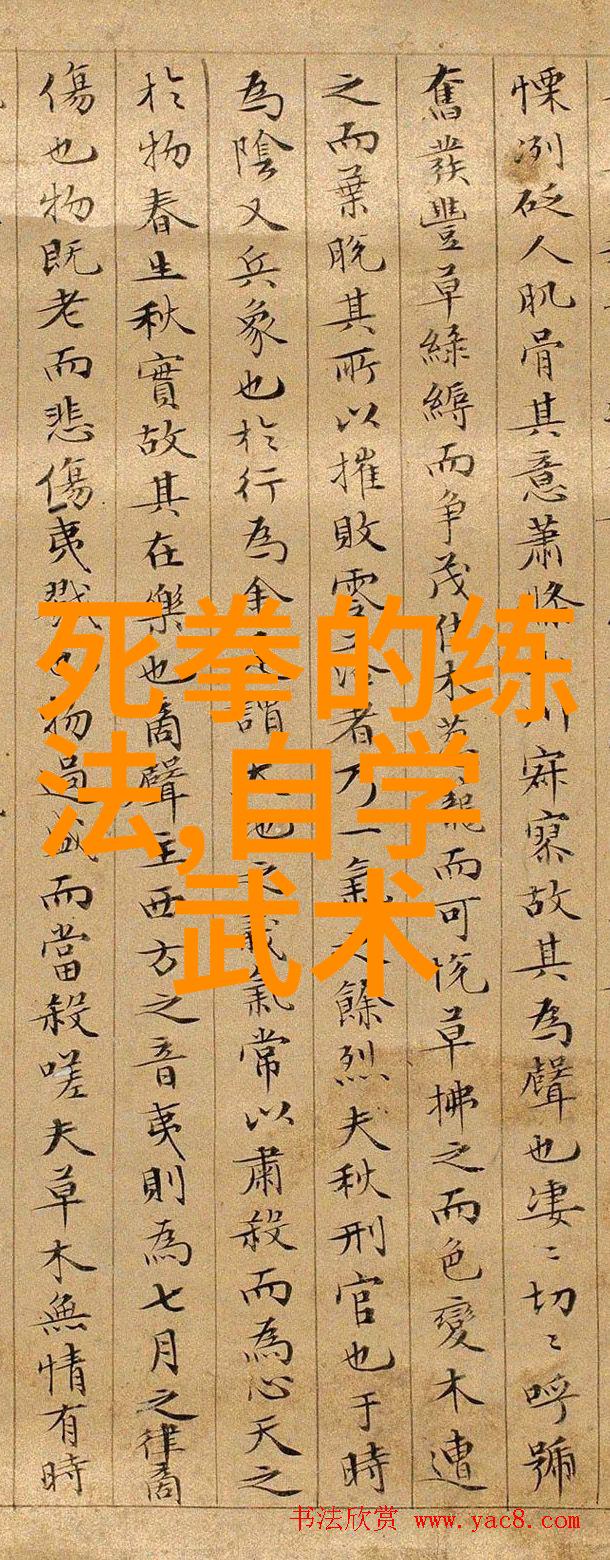 死拳的练
法,自学
武术
慄冽砭人肌骨其意蕭條川寂寥故其為聲也凄〻切〻呼號
奮發豐草綠縟而争茂佳木葱蘢而可悦草拂之而色變木遭
之而葉脫其所以摧敗零落者乃一氣之餘烈夫秋刑官也于時
為陰又兵象也於行為金是謂天地之義氣常以肅殺而為心天之
於物春生秋實故其在樂也商聲主西方之音夷則為七月之律商
傷也物既老而悲傷夷戮也物過盛而當殺嗟夫草木無情有時
书法欣赏 www.yac8.com